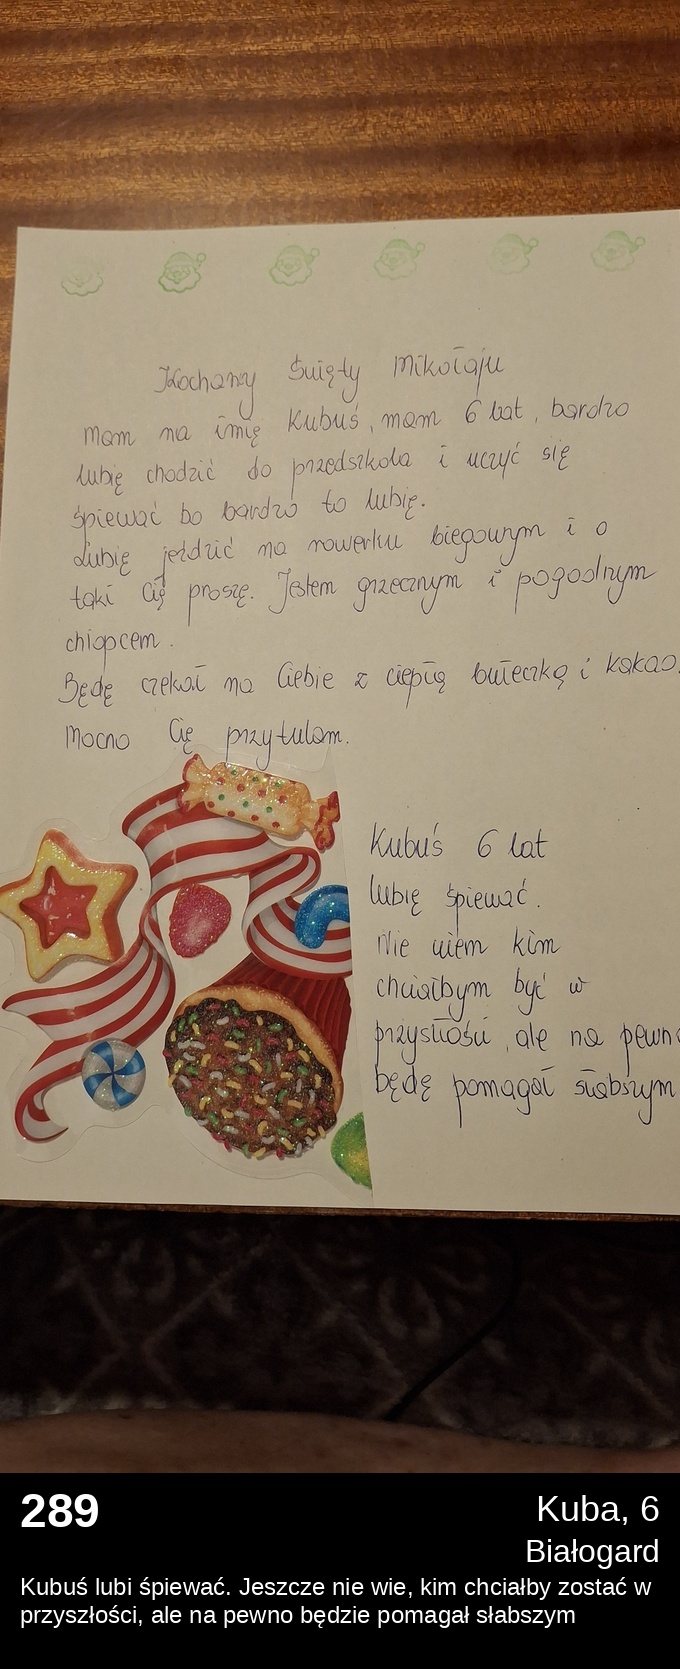 Kochany Święty Mikołaju
Mam na imię Kubuś, mam 6 lat, bardzo
lubię chodzić do przedszkola i uczyć się
śpiewać bo bardzo to lubię.
Lubię jeździć na rowerku biegowym i o
taki Cię proszę. Jestem grzecznym i pogodnym
chłopcem.
Będę czekał na Ciebie z ciepłą bułeczką i kakao.
Mocno Cię przytulam.
Kubuś 6 lat
lubię śpiewać.
Nie wiem kim
chciałbym być w
przyszłości, ale na pewno
będę pomagał słabszym
289
Kuba, 6
Białogard
Kubuś lubi śpiewać. Jeszcze nie wie, kim chciałby zostać w
przyszłości, ale na pewno będzie pomagał słabszym